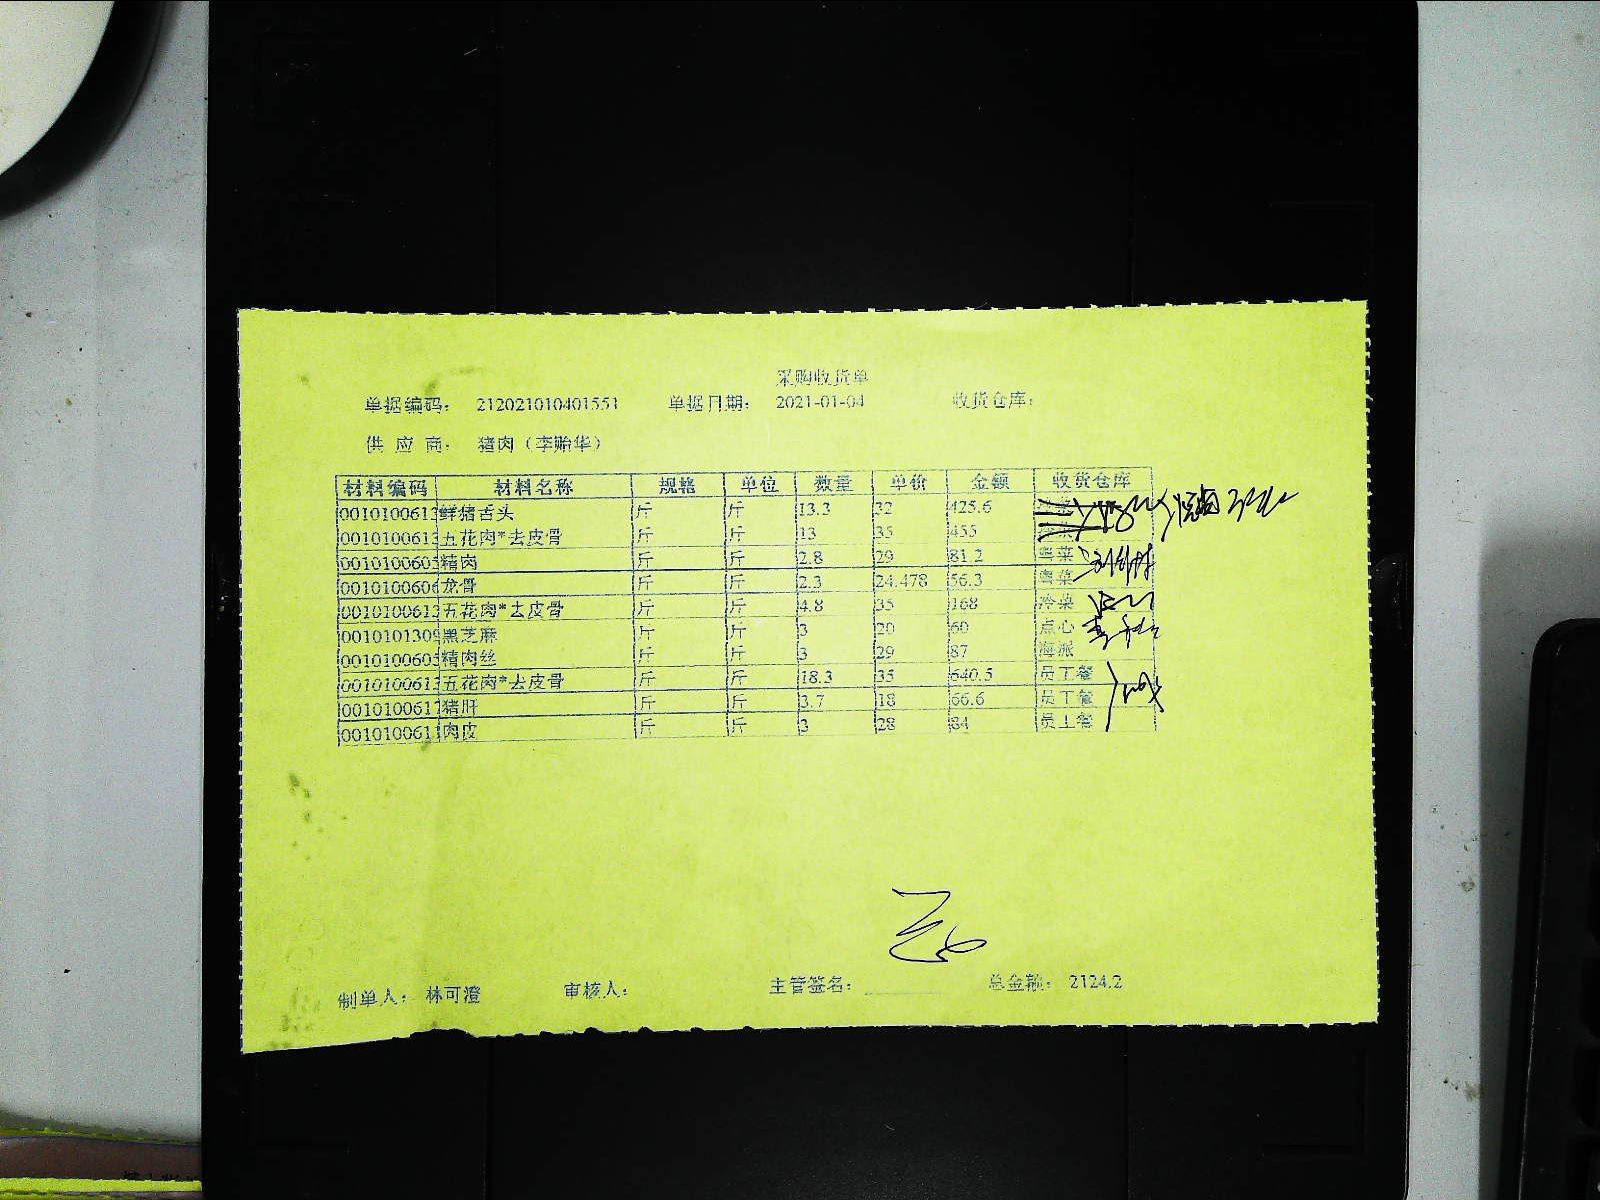 采购收货单
单据编码： 212021010401551 单据日期： 2021-01-04 收货仓库：
供 应 商： 猪肉（李贻华）
材料编码 材料名称 规格 单位 数量 单价 金额 收货仓库
0010100613 鲜猪舌头 斤 斤 13.3 32 425.6
0010100613 五花肉*去皮骨 斤 斤 13 35 455
001010060 精肉 斤 斤 2.8 29 81.2 粤菜
0010100606 龙骨 斤 斤 2.3 24.478 56.3 粤菜
0010100613 五花肉*去皮骨 斤 斤 4.8 35 168 冷菜
001010130 黑芝麻 斤 斤 3 20 60 点心
001010060 精肉丝 斤 斤 3 29 87 海派
0010100613 五花肉*去皮骨 斤 斤 18.3 35 640.5 员工餐
001010061 猪肝 斤 斤 3.7 18 66.6 员工餐
001010061 肉皮 斤 斤 3 28 84 员工餐
制单人： 林可澄 审核人： 主管签名： 总金额： 2124.2